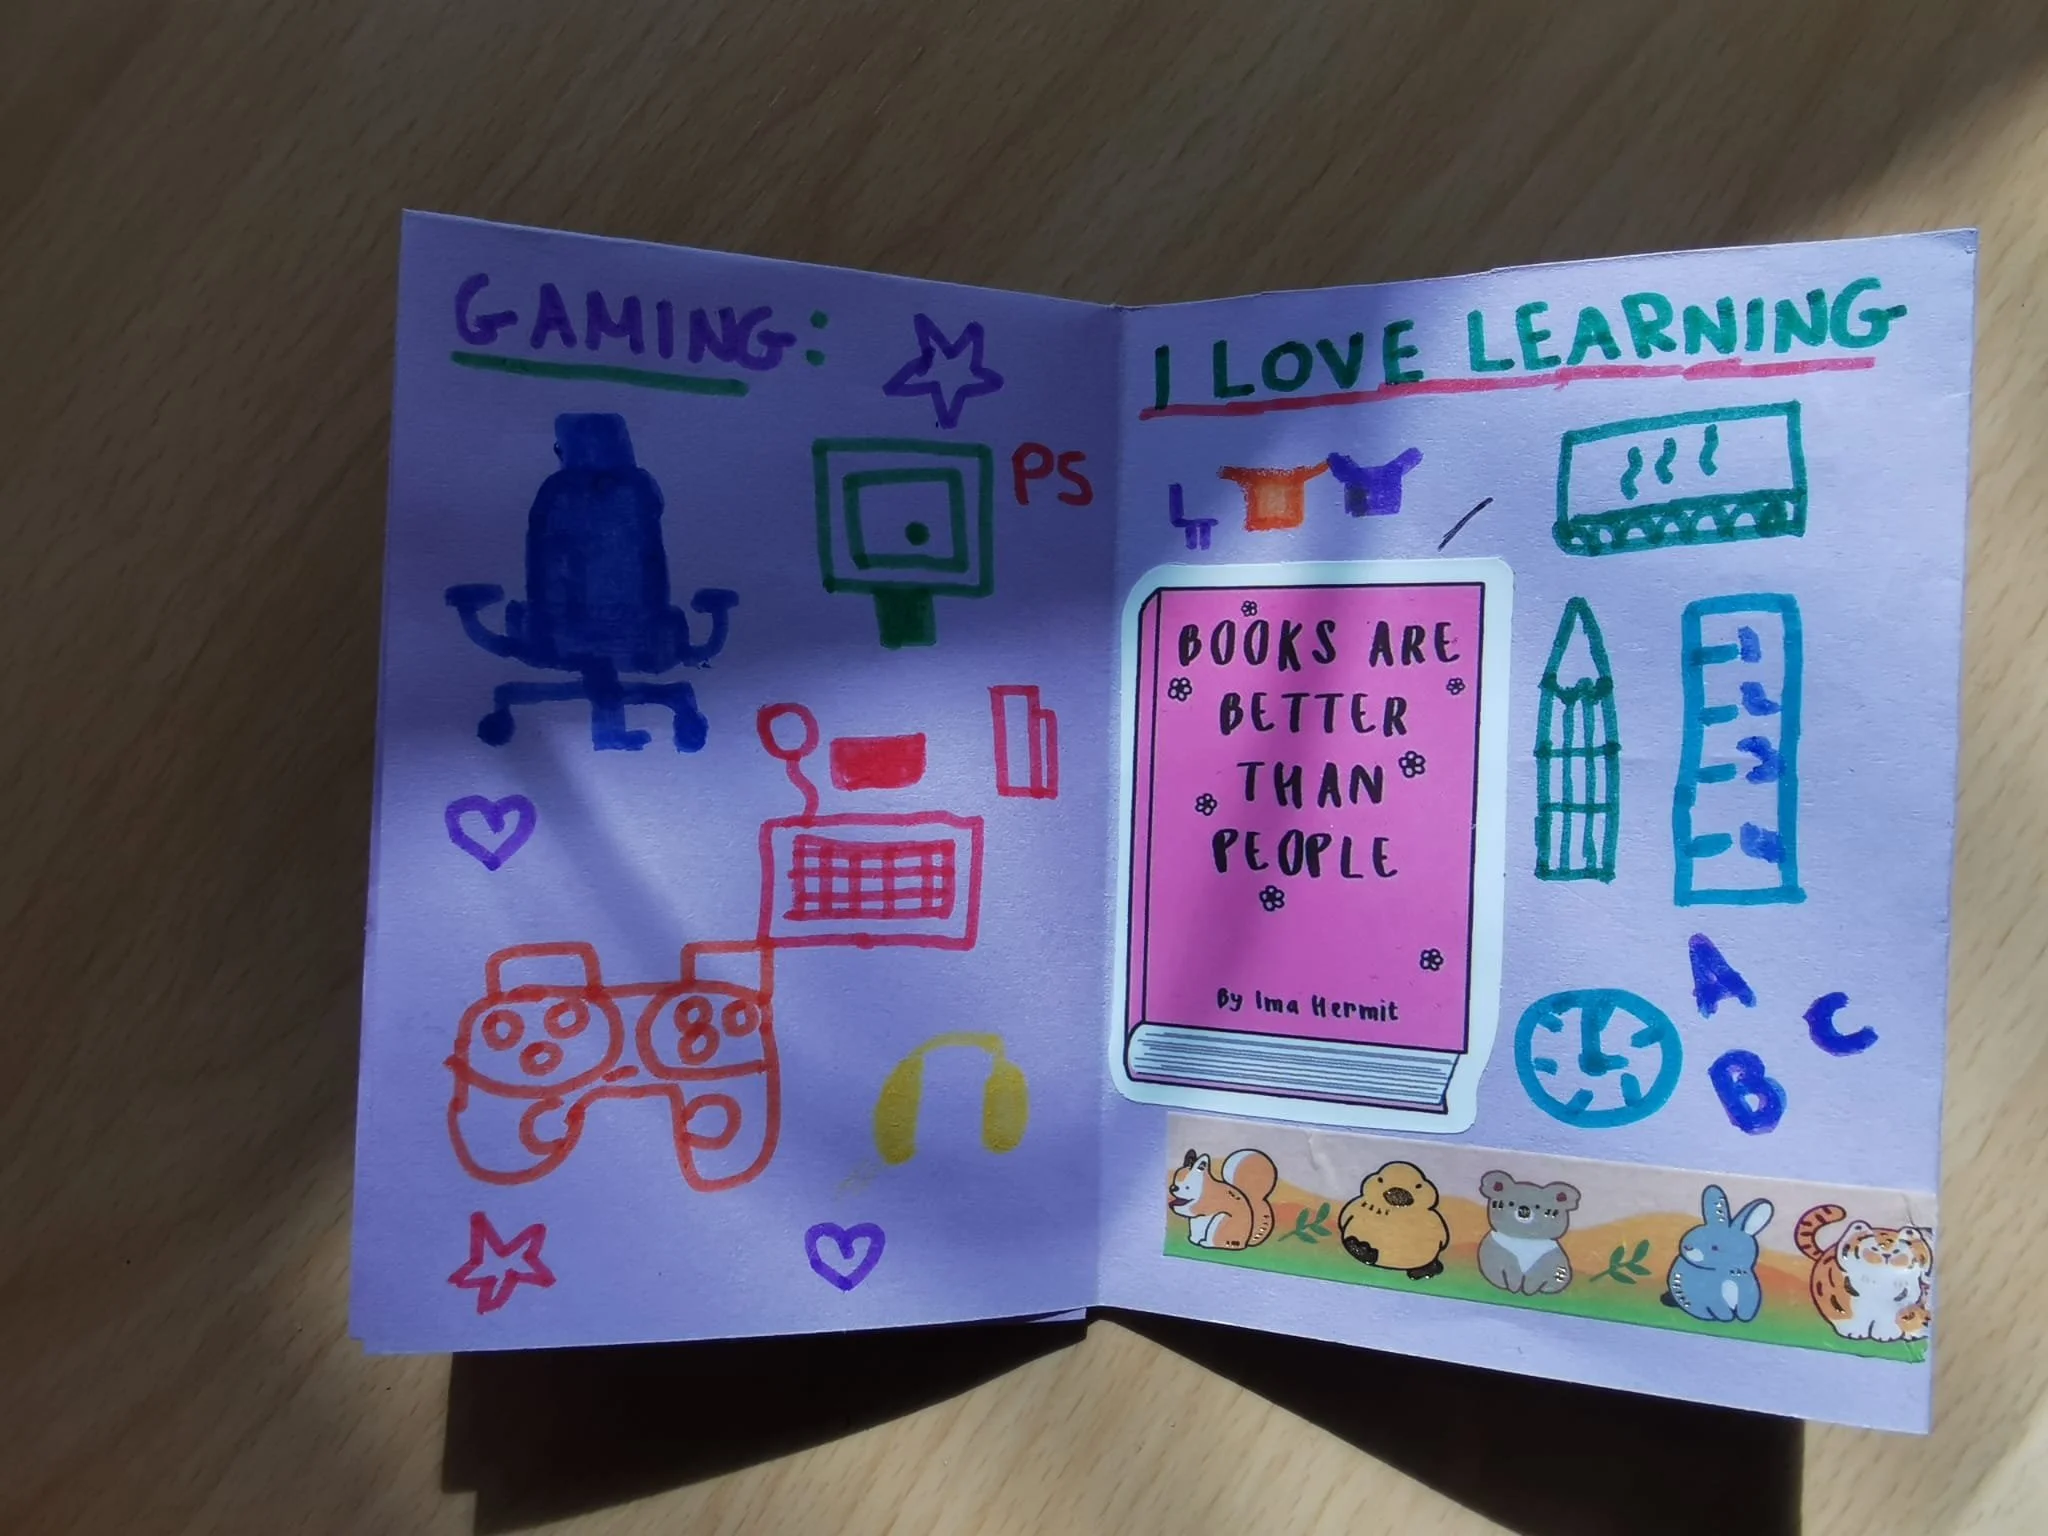 GAMING:
PS
I LOVE LEARNING
BOOKS ARE
BETTER
THAN
PEOPLE
By Ima Hermit
A
B
C